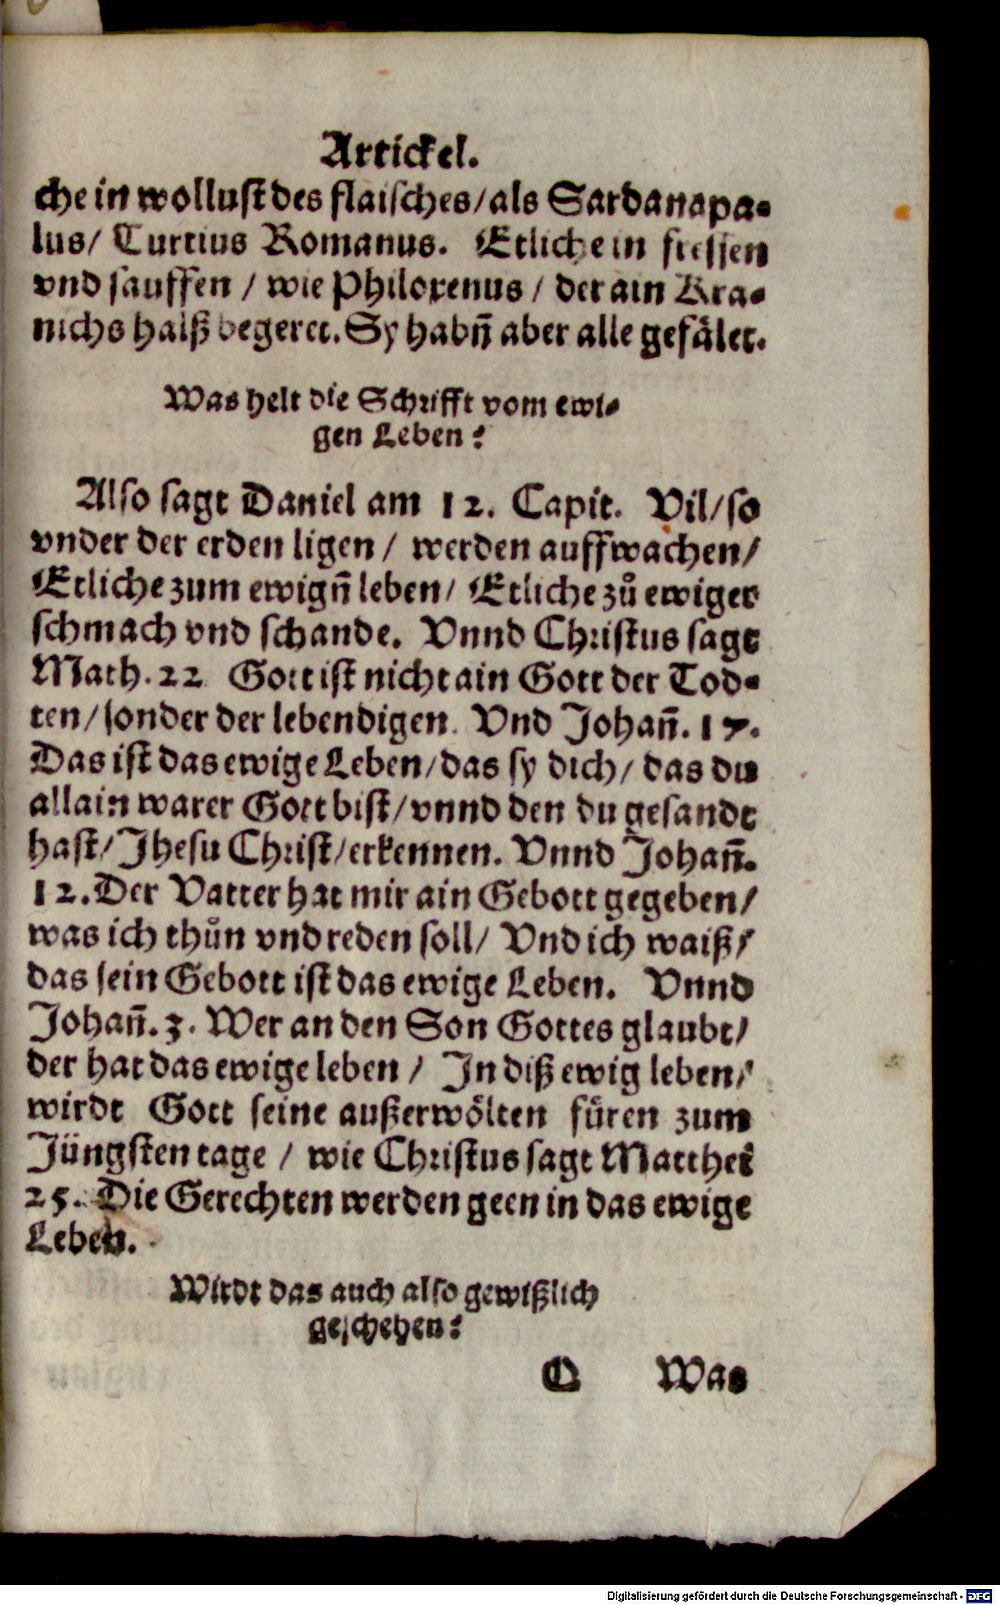 Artickel.
che in wollust des flaisches/ als Sardanapa-
lus/ Curtius Romanus. Etliche in fressen
vnd sauffen / wie Philoxenus / der ain Kra-
nichs halß begeret. Sy habñ aber alle gefälet.
Was helt die Schrifft vom ewi-
gen Leben?
Also sagt Daniel am 12. Capit. Vil/ so
vnder der erden ligen / werden auffwachen/
Etliche zum ewigñ leben/ Etliche zů ewiger
schmach vnd schande. Vnnd Christus sagt
Math. 22 Gott ist nicht ain Gott der Tod-
ten/ sonder der lebendigen. Vnd Johañ. 17.
Das ist das ewige Leben/ das sy dich/ das du
allain warer Gott bist/ vnnd den du gesandt
hast/ Jhesu Christ/ erkennen. Vnnd Johañ.
12. Der Vatter hat mir ain Gebott gegeben/
was ich thůn vnd reden soll/ Vnd ich waiß/
das sein Gebott ist das ewige Leben. Vnnd
Johañ. 3. Wer an den Son Gottes glaubt/
der hat das ewige leben / In diß ewig leben/
wirdt Gott seine außerwölten füren zum
Jüngsten tage / wie Christus sagt Matthei
25. Die Gerechten werden geen in das ewige
Leben.
Wirdt das auch also gewißlich
geschehen?
Q Was
Digitalisierung gefördert durch die Deutsche Forschungsgemeinschaft - DFG